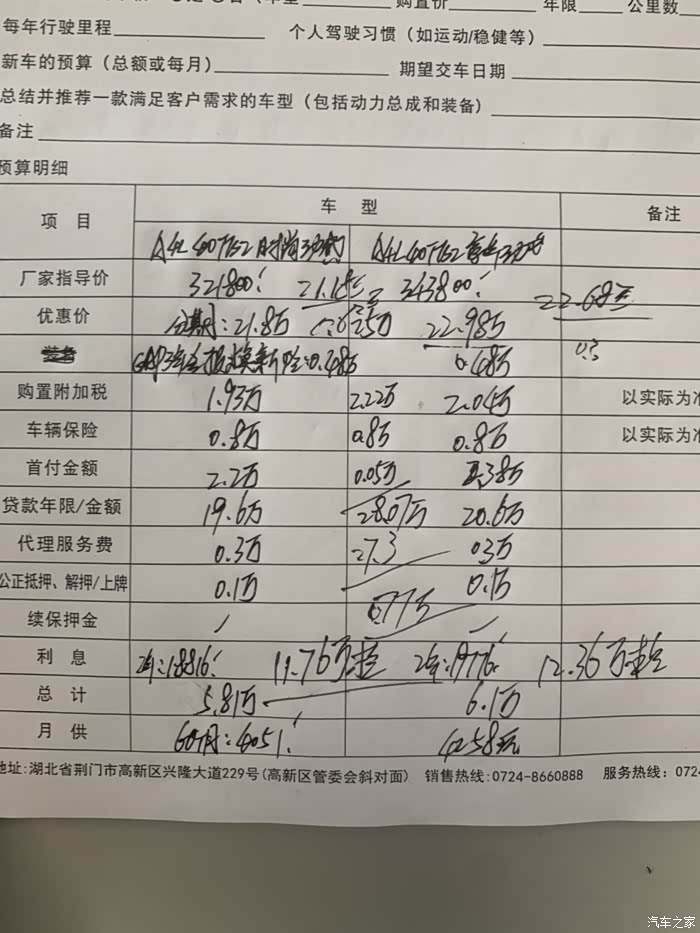 购置价 年限 公里数
每年行驶里程 个人驾驶习惯（如运动/稳健等）
新车的预算（总额或每月） 期望交车日期
总结并推荐一款满足客户需求的车型（包括动力总成和装备）
备注
预算明细
项 目 车 型 备注
A4L 40TFSI 时尚动感 A4L 40TFSI 豪华动感
厂家指导价 321800 343800 22.68
优惠价 分期：21.8万 22.98万
0.3
GAP 0.48万 0.48万
购置附加税 1.93万 2.22万 2.04万 以实际为准
车辆保险 0.8万 0.8万 0.8万 以实际为准
首付金额 2.2万 0.05万 2.38万
贷款年限/金额 19.6万 28.07万 20.6万
代理服务费 0.3万 27.3 0.3万
公正抵押、解押/上牌 0.1万 0.1万
续保押金 / 0.77万 /
利 息 2年：18816 11.76万 2年：19776 12.36万
总 计 5.81万 6.1万
月 供 60期：4051 4258元
地址：湖北省荆门市高新区兴隆大道229号(高新区管委会斜对面) 销售热线：0724-8660888 服务热线：072
汽车之家